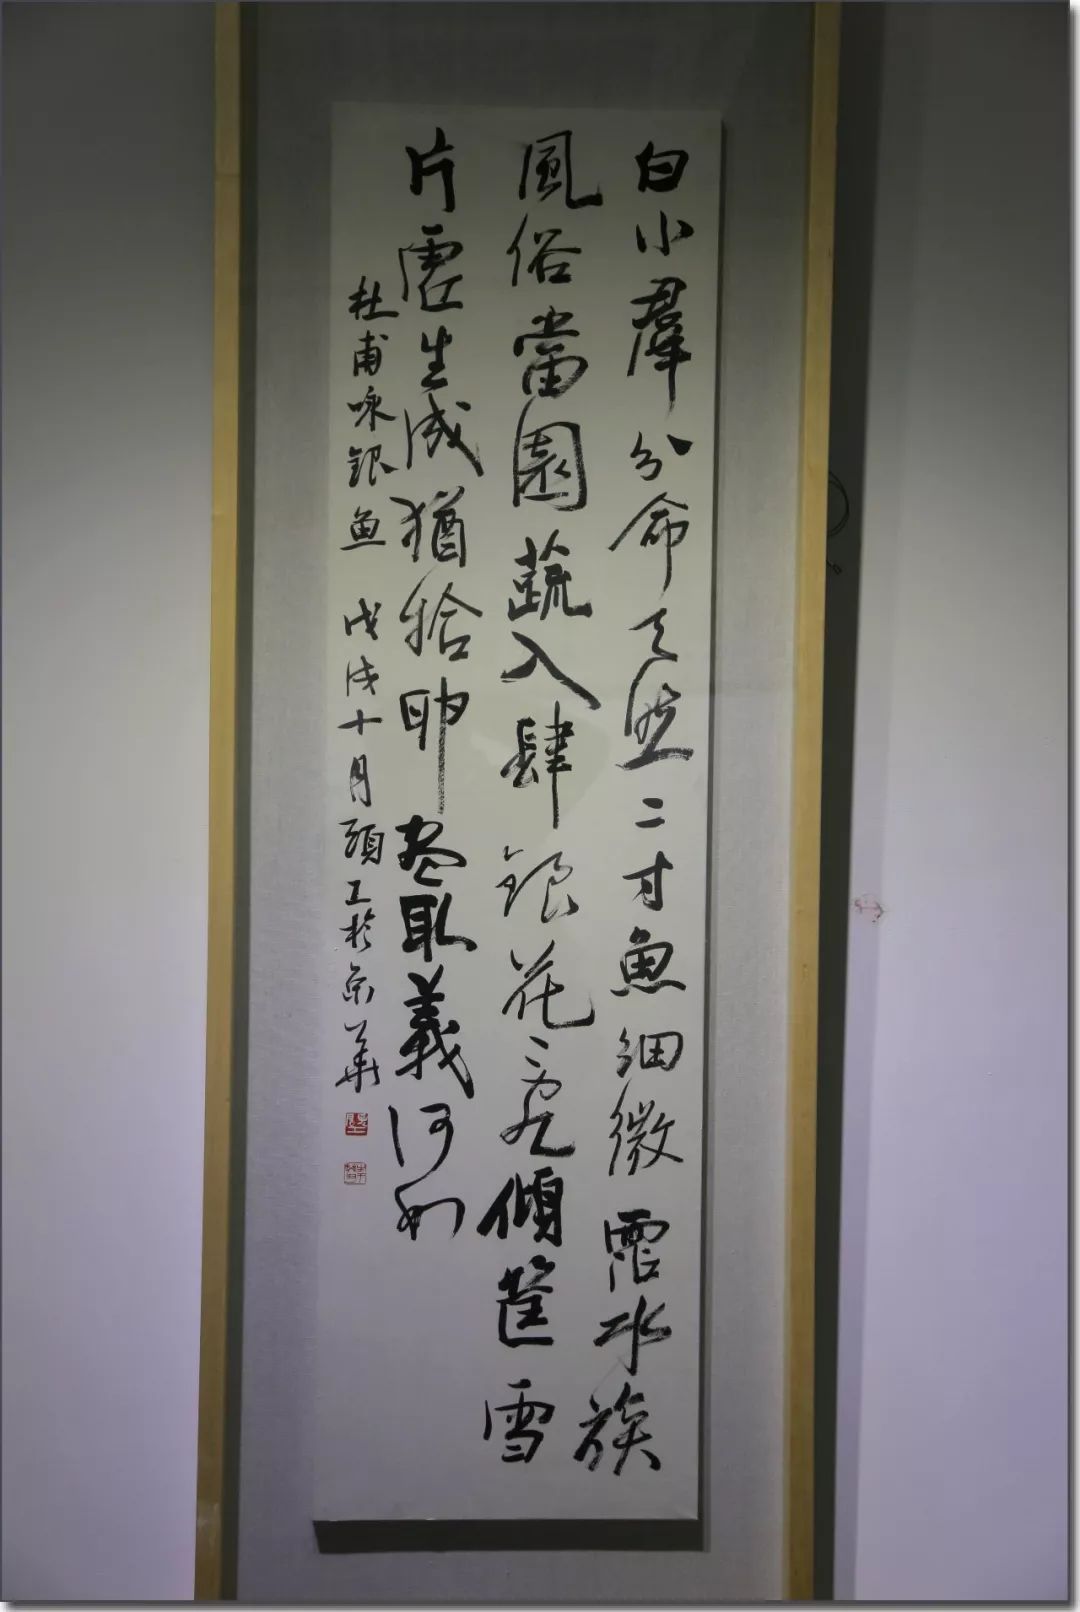 白小羣分命天然二寸魚細微霑水族
風俗當園蔬入肆銀花乱傾筐雪
片虛生成猶拾卵盡取義何如
杜甫咏銀魚 戊戌十月 於京華